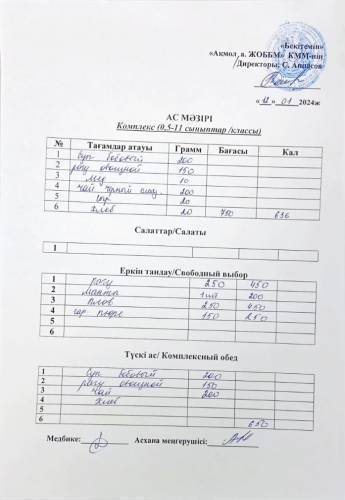 «Бекітемін»
«Акмол а. ЖОББМ» КММ-нің
Директоры: С. Аппасов
«12» 01 2024ж
АС МӘЗІРІ
Комплекс (0,5-11 сыныптар /классы)
№ Тағамдар атауы Грамм Бағасы Кал
1 Суп бобовый 200
2 рагу овощной 150
3 10
4 чай черный 200
5 20
6 хлеб 20 750 636
Салаттар/Салаты
1
Еркін таңдау/Свободный выбор
1 рагу 250 450
2 манты 1шт 200
3 плов 250 450
4 гар пюре 150 250
5
6
Түскі ас/ Комплексный обед
1 Суп бобовый 200
2 рагу овощной 150
3 чай 200
4 хлеб
5
6 650
Медбике: Асхана меңгерушісі: